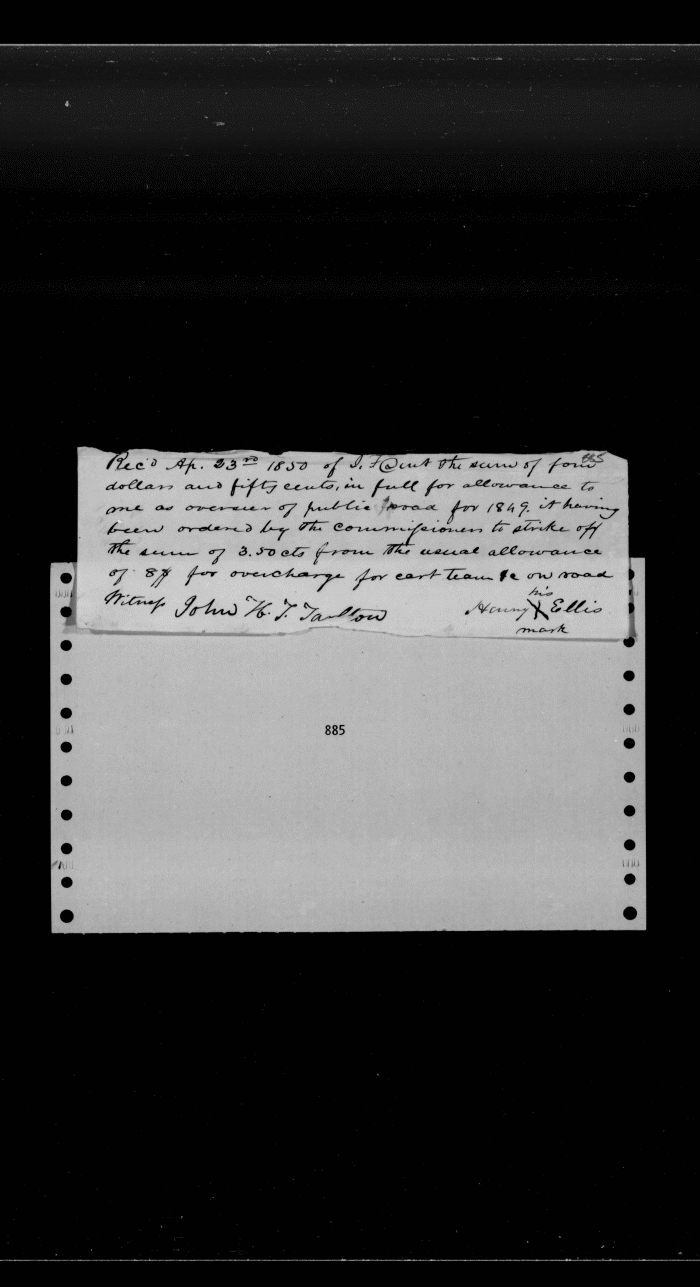 Rec'd Ap. 23rd 1850 of the sum of four
dollars and fifty cents, in full for allowance to
me as overseer of public road for 1849. it having
been ordered by the commissioners to strike off
the sum of 3.50cts from the usual allowance
of 8$ for overcharge for cart team &c on road
Witness John H. T. Tarlton
his
Henry X Ellis
mark
885